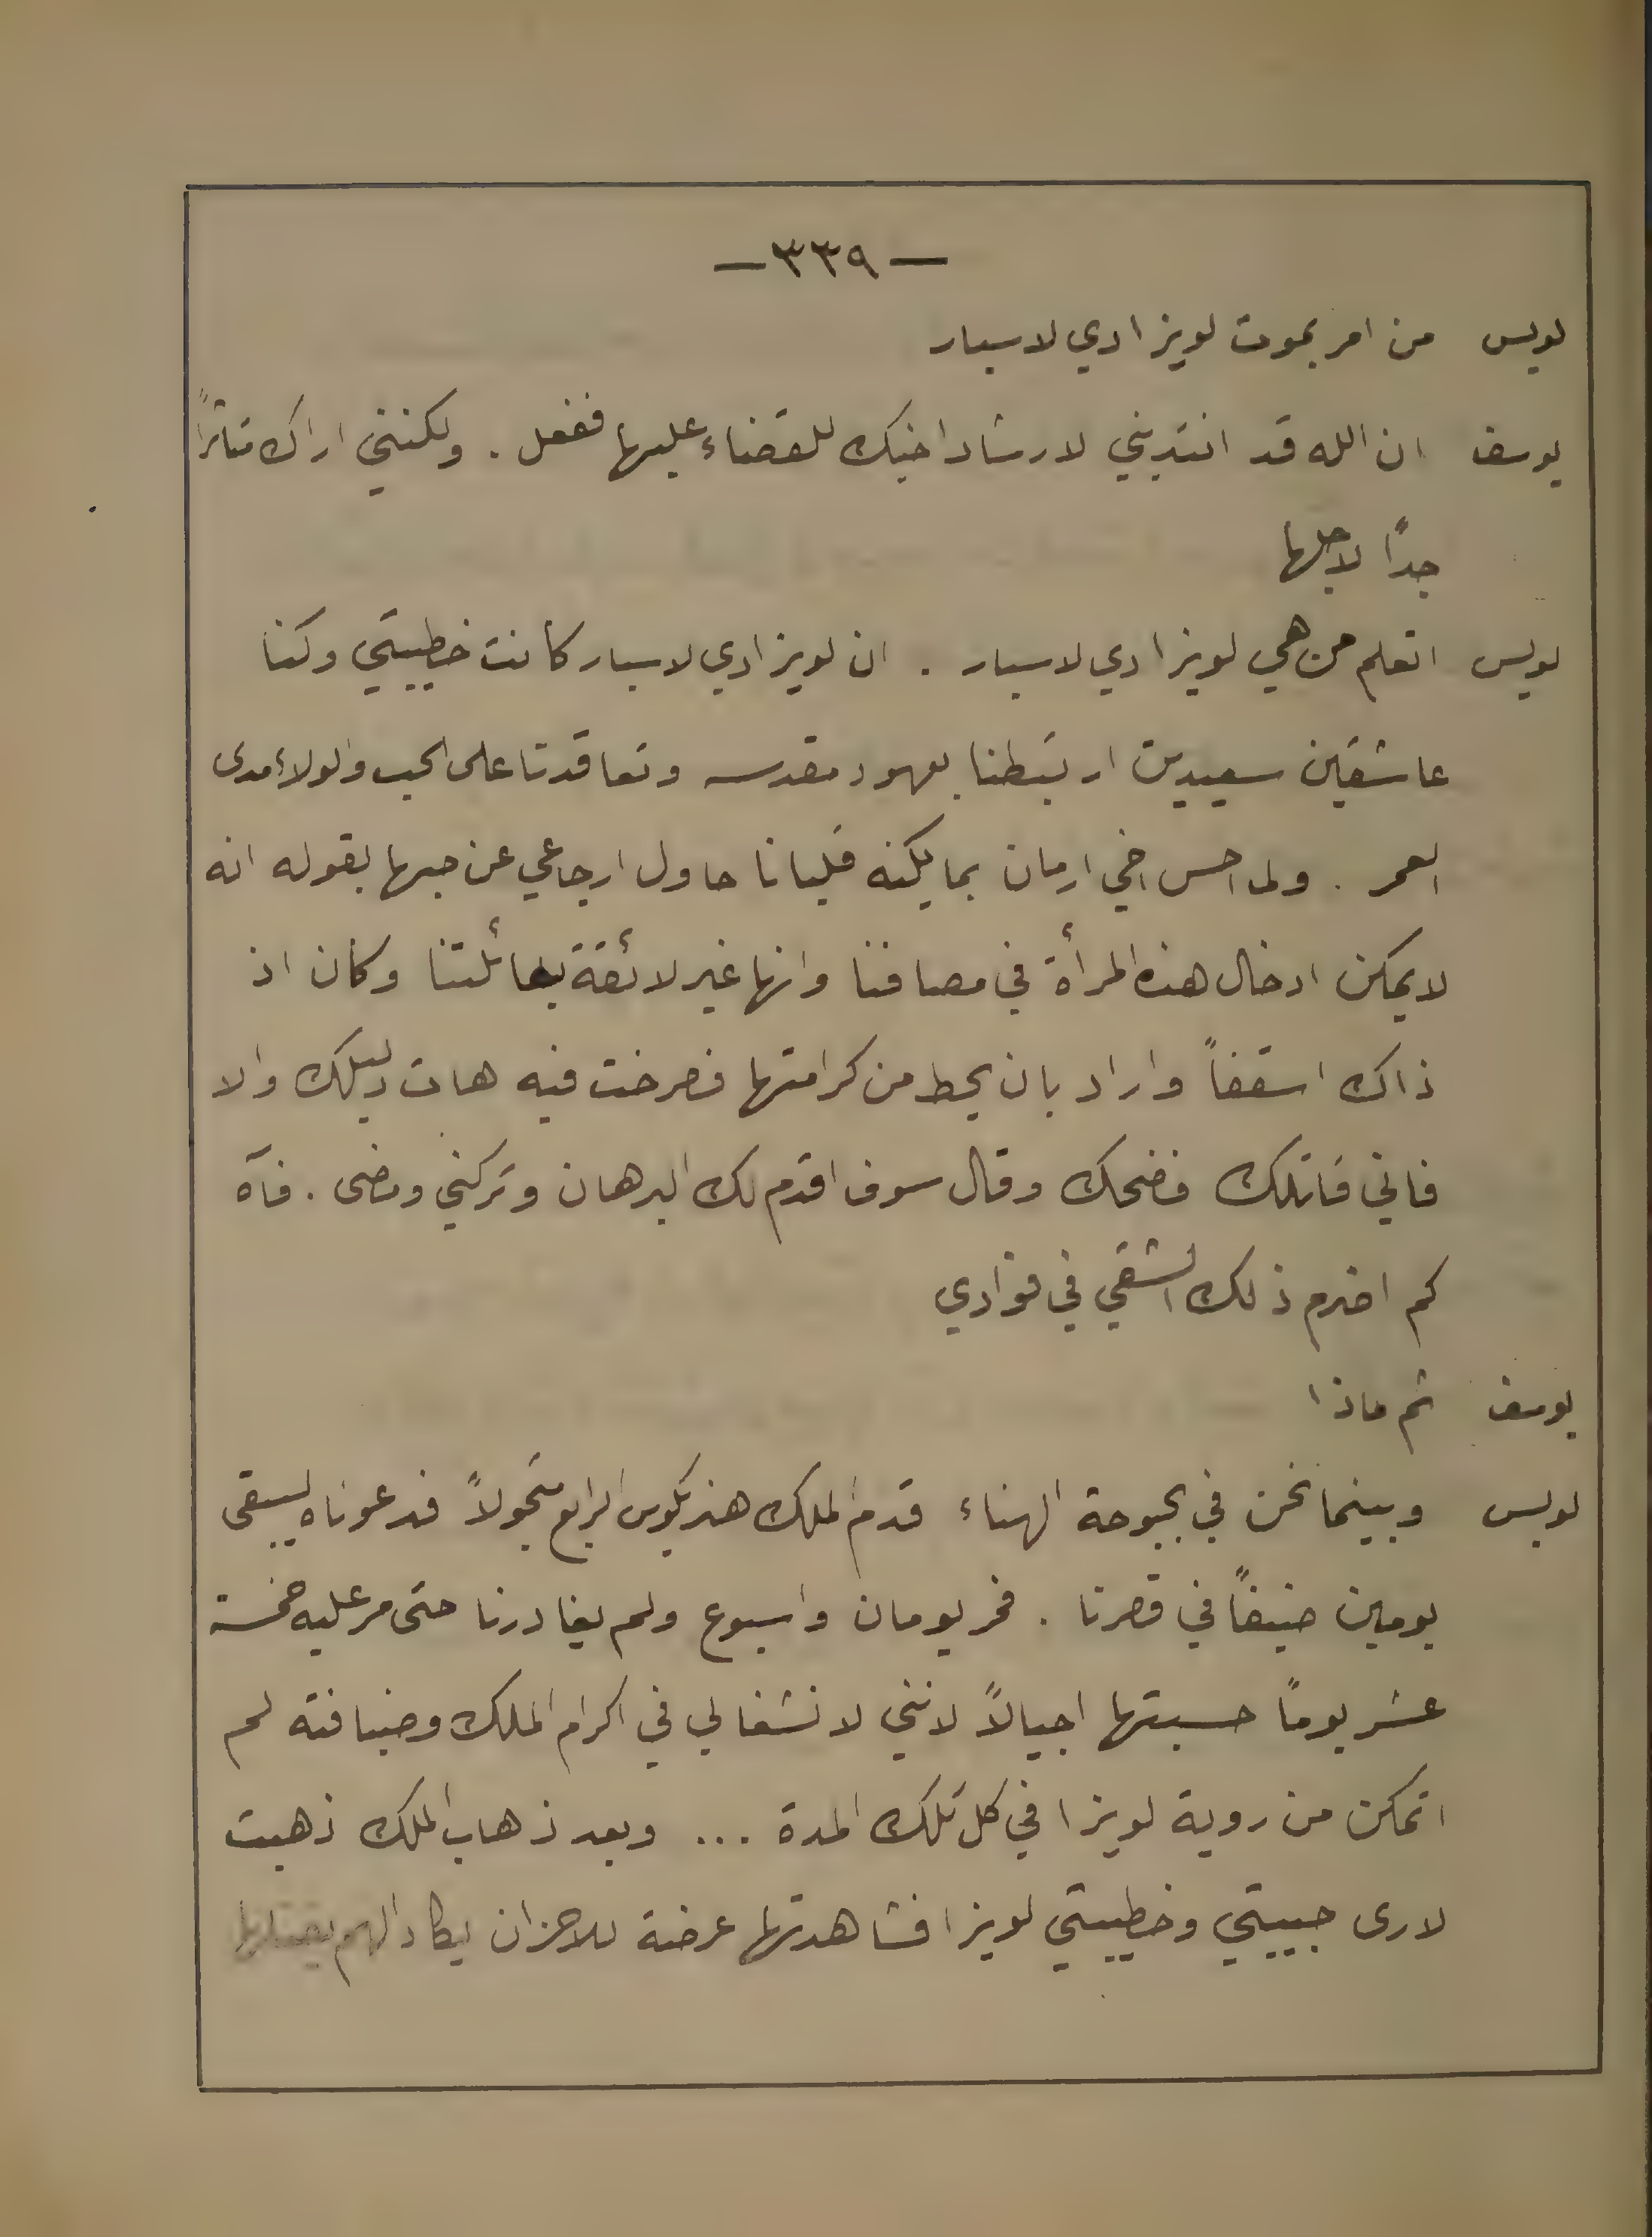 — ٣٣٩ —
لويس من امر بموت لويزا دي لاسبار
يوسف ان الله قد انتدبني لارشاد اخيك للقضاء عليها ففعل . ولكنني اراك متاثراً
جداً لاجلها
لويس اتعلم من هي لويزا دي لاسبار . ان لويزا دي لاسبار كانت خطيبتي وكنا
عاشقين سعيدين ارتبطنا بعهود مقدسه وتعاقدنا على الحب والولاء مدى
العمر . ولما احس اخي ارمان بما يكنه قلبانا حاول ارجاعي عن حبها بقوله انه
لا يمكن ادخال هذه المرأة في مصافنا وانها غير لائقة بعائلتنا وكان اذ
ذاك اسقفاً واراد بان يحط من كرامتها فصرخت فيه هات دليلك والا
فاني قاتلك فضحك وقال سوف اقدم لك البرهان وتركني ومضى . فآه
كم اضرم ذلك الشقي في فوادي
يوسف ثم ماذا
لويس وبينما نحن في بحبوحة الهناء قدم الملك هنريكوس الرابع متجولاً فدعوناه ليبقى
يومين ضيفاً في قصرنا . فمر يومان واسبوع ولم يغادرنا حتى مر عليه خمسة
عشر يوماً حسبتها اجيالاً لانني لانشغالي في اكرام الملك وضيافته لم
اتمكن من روية لويزا في كل تلك المدة ... وبعد ذهاب الملك ذهبت
لارى حبيبتي وخطيبتي لويزا فشاهدتها عرضة للاحزان يكاد الهم